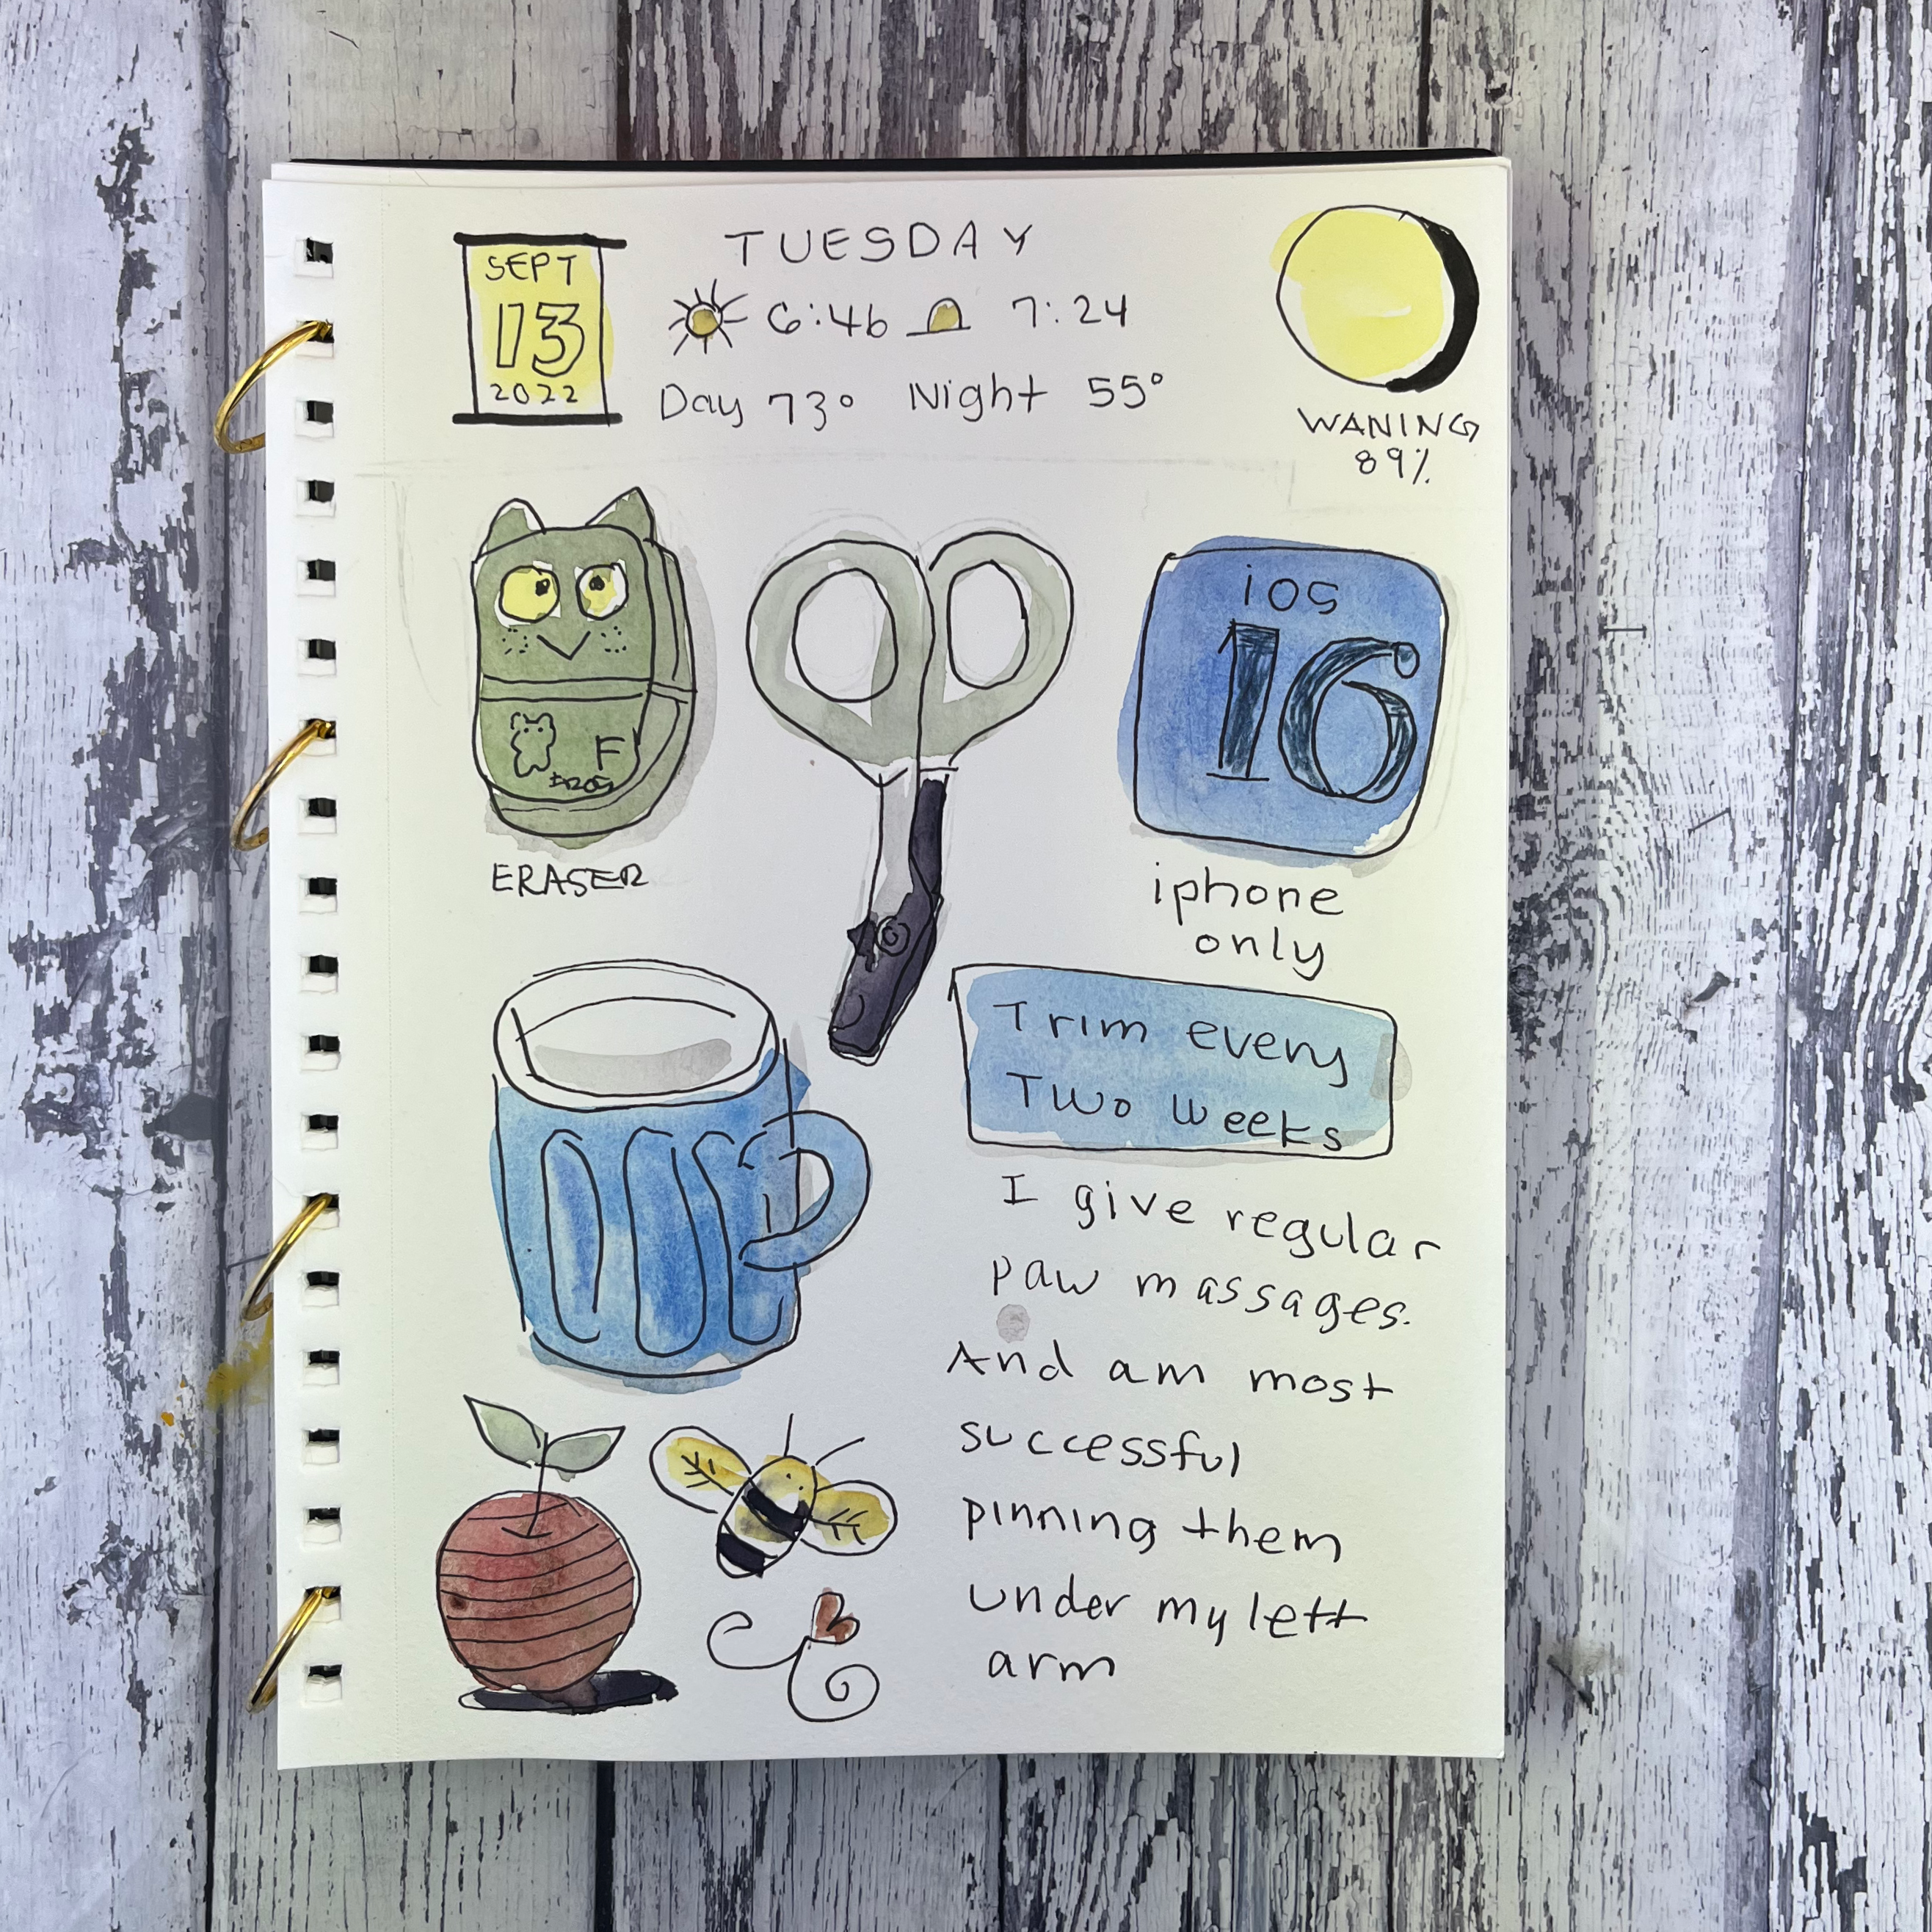 TUESDAY
SEPT
13
2022
6:46 7:24
Day 73° Night 55°
WANING
89%
iOS
16
F
ERASER
iphone
only
Trim every
Two weeks
I give regular
paw massages.
And am most
successful
pinning them
under my left
arm